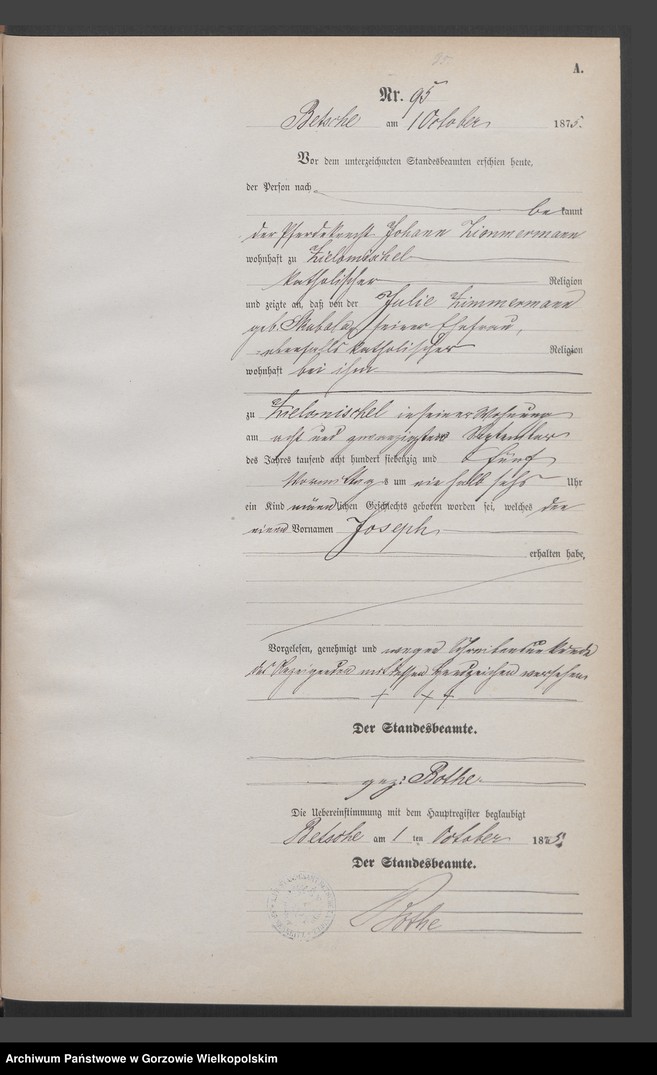 A.
Nr. 95
Betsche am 1 October 1875.
Vor dem unterzeichneten Standesbeamten erschien heute,
der Person nach
bekannt
der Pferdeknecht Johann Zimmermann
wohnhaft zu Zielomischel
katholischer Religion
und zeigte an, daß von der Julie Zimmermann
geb. seiner Ehefrau,
ebenfalls katholischer Religion
wohnhaft bei ihm
zu Zielomischel in seiner Wohnung
am acht und zwanzigsten September
des Jahres tausend acht hundert siebenzig und fünf
Vormittags um ein halb sechs Uhr
ein Kind männlichen Geschlechts geboren worden sei, welches den
einen Vornamen Joseph
erhalten habe,
Vorgelesen, genehmigt und wegen Schreibensunkunde
des Anzeigenden mit dessen Handzeichen versehen.
+ + +
Der Standesbeamte.
gez: Bothe.
Die Uebereinstimmung mit dem Hauptregister beglaubigt
Betsche am 1 ten October 1875.
Der Standesbeamte.
Bothe
Archiwum Państwowe w Gorzowie Wielkopolskim